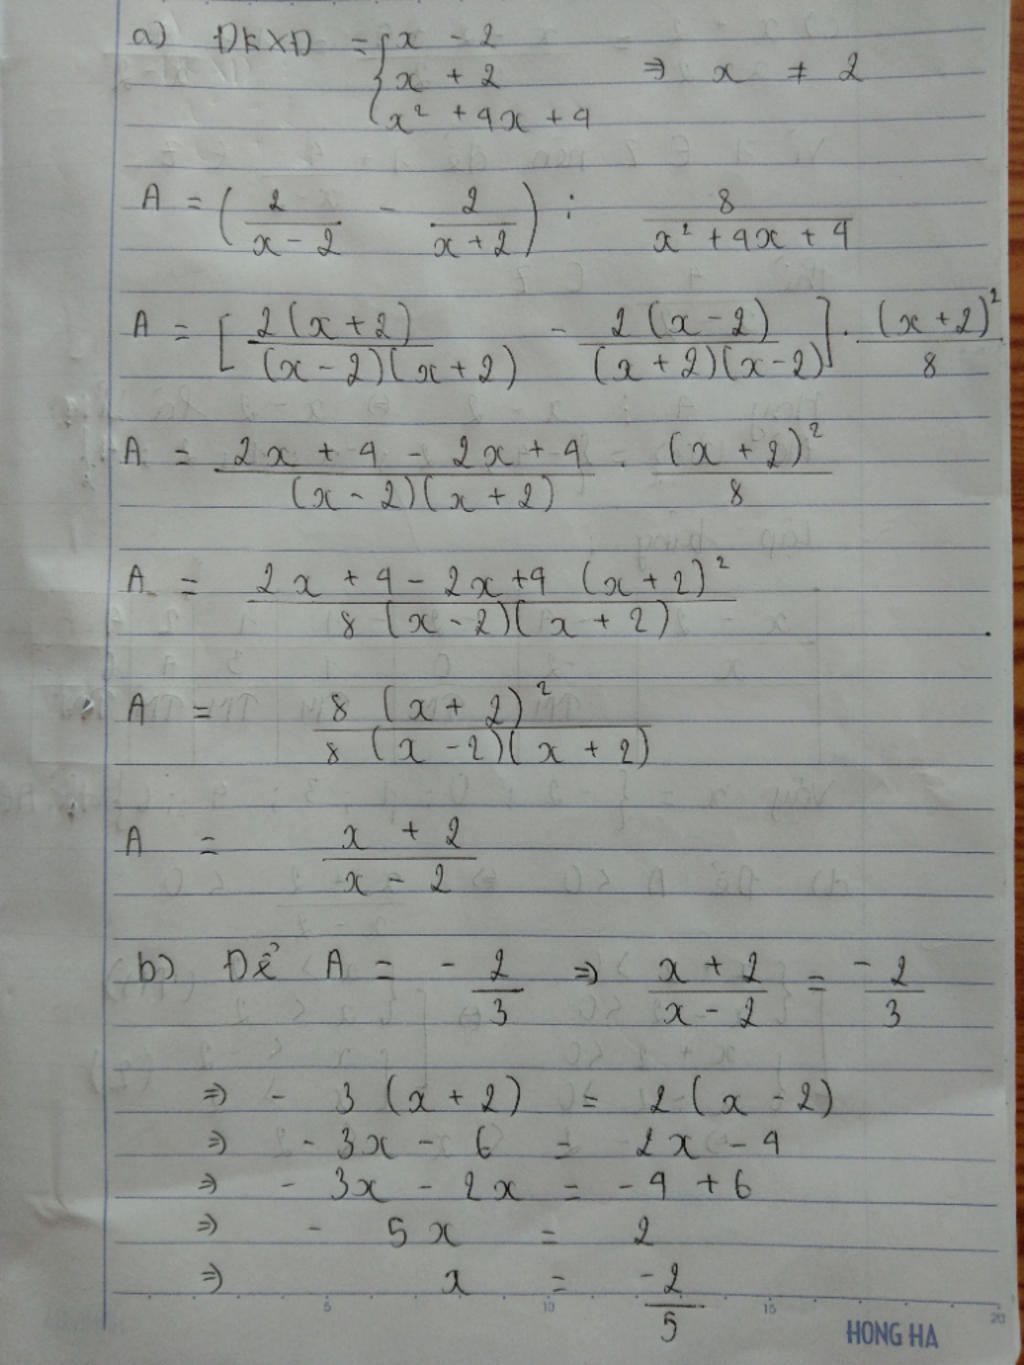 a) ĐKXĐ = { x - 2
x + 2 ⇒ x ≠ 2
x² + 4x + 4
A = ( 2/(x - 2) - 2/(x + 2) ) : 8/(x² + 4x + 4)
A = [ 2(x + 2)/((x - 2)(x + 2)) - 2(x - 2)/((x + 2)(x - 2)) ] . (x + 2)²/8
A = (2x + 4 - 2x + 4)/((x - 2)(x + 2)) . (x + 2)²/8
A = 2x + 4 - 2x + 4 (x + 2)² / 8 (x - 2)(x + 2)
A = 8 (x + 2)² / 8 (x - 2)(x + 2)
A = (x + 2)/(x - 2)
b) Để A = - 2/3 ⇒ (x + 2)/(x - 2) = - 2/3
⇒ - 3 (x + 2) = 2 (x - 2)
⇒ - 3x - 6 = 2x - 4
⇒ - 3x - 2x = - 4 + 6
⇒ - 5x = 2
⇒ x = -2/5
5 10 15 20
HONG HA